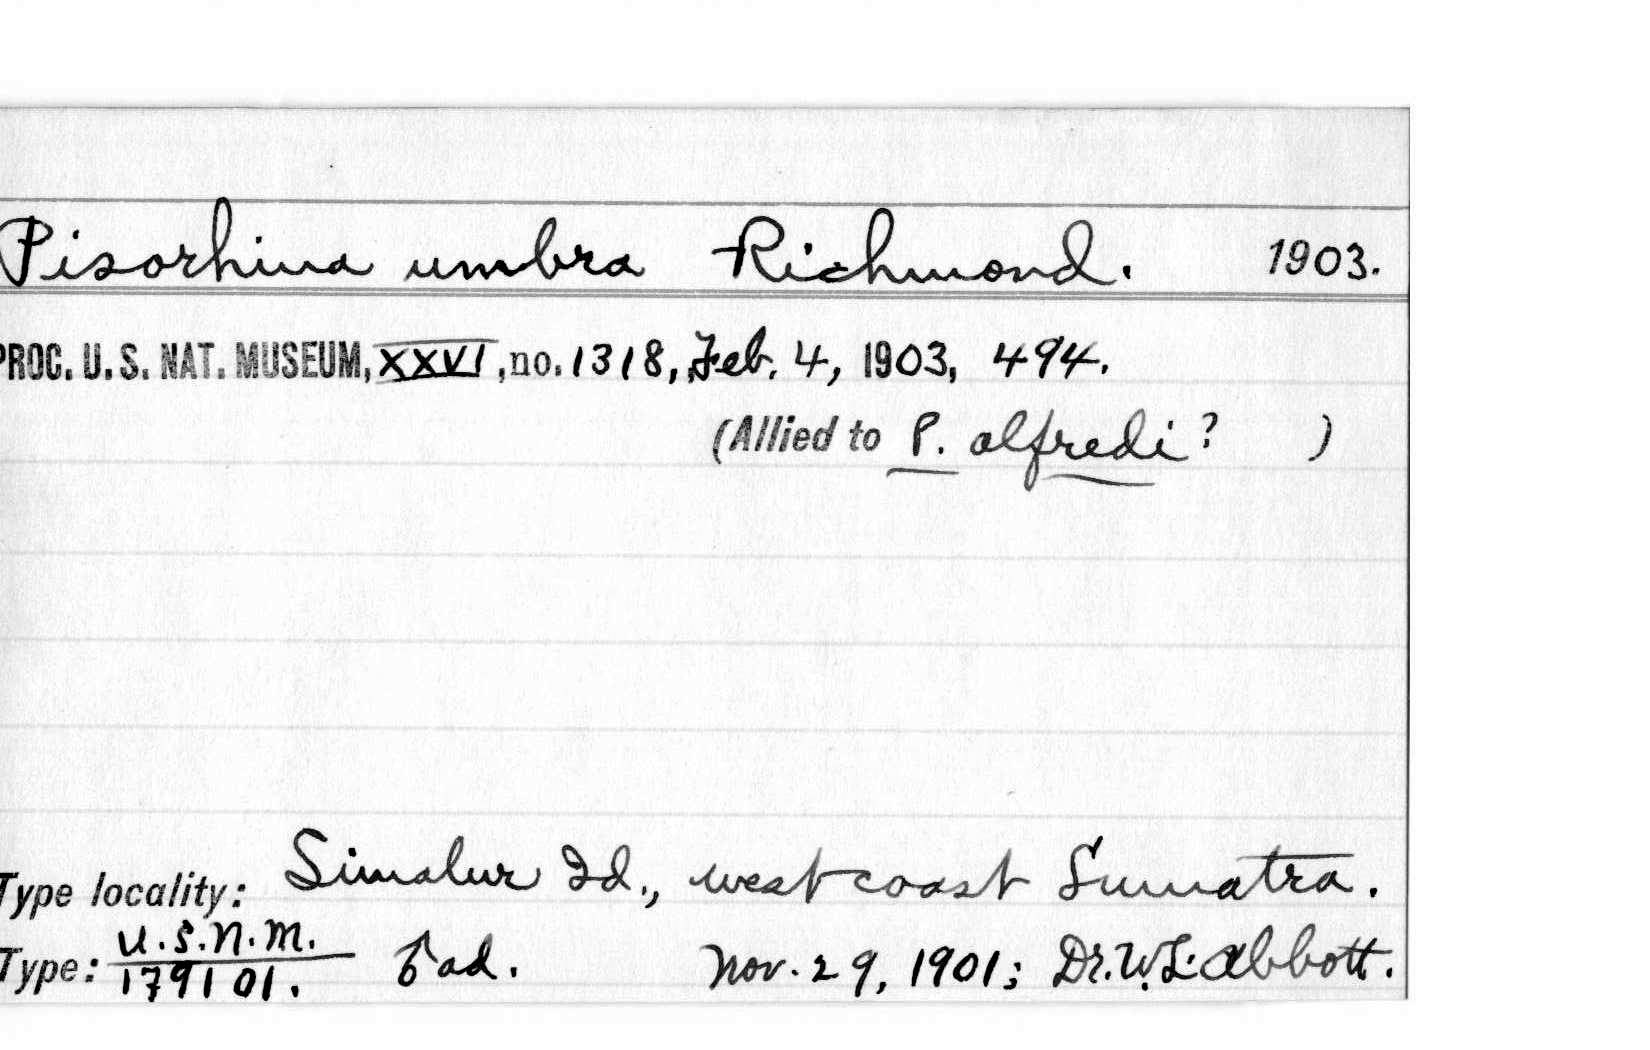 Pisorhina umbra Richmond. 1903.
PROC. U. S. NAT. MUSEUM, XXVI, no. 1318, Feb. 4, 1903, 494.
(Allied to P. alfredi? )
Type locality: Simalur Id., west coast Sumatra.
Type: U.S.N.M. 179101. ♂ ad. Nov. 29, 1901; Dr. W. L. Abbott.